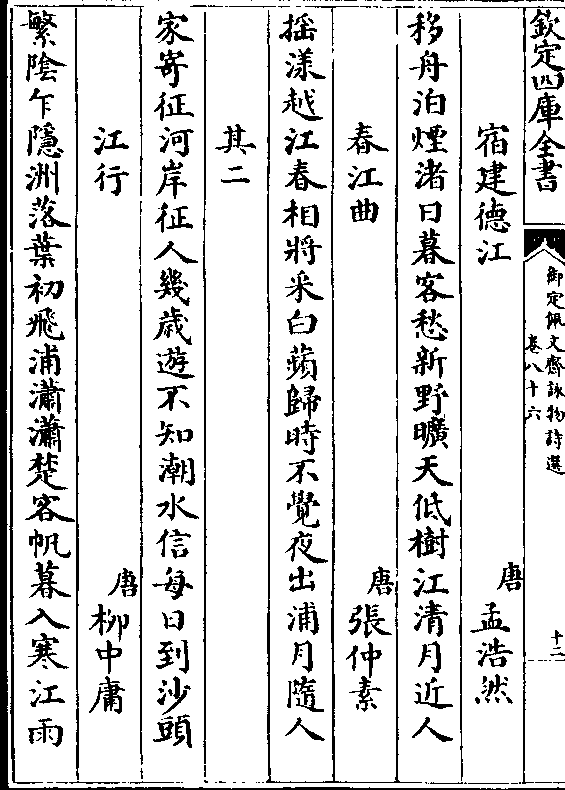 欽定四庫全書
御定佩文齋詠物詩選
卷八十六
十二
宿建德江
唐孟浩然
移舟泊煙渚日暮客愁新野曠天低樹江清月近人
春江曲
唐張仲素
揺漾越江春相將采白蘋歸時不覺夜出浦月隨人
其二
家寄征河岸征人幾歲遊不知潮水信每日到沙頭
江行
唐柳中庸
繁陰乍隱洲落葉初飛浦瀟瀟楚客帆暮入寒江雨